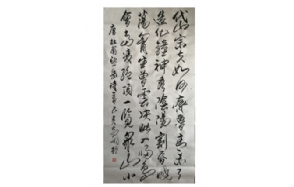 岱宗夫如何齊魯青未了
造化鍾神秀陰陽割昏曉
蕩胸生曾雲決眦入歸鳥
會當凌絕頂一覽眾山小
唐杜甫望岳詩